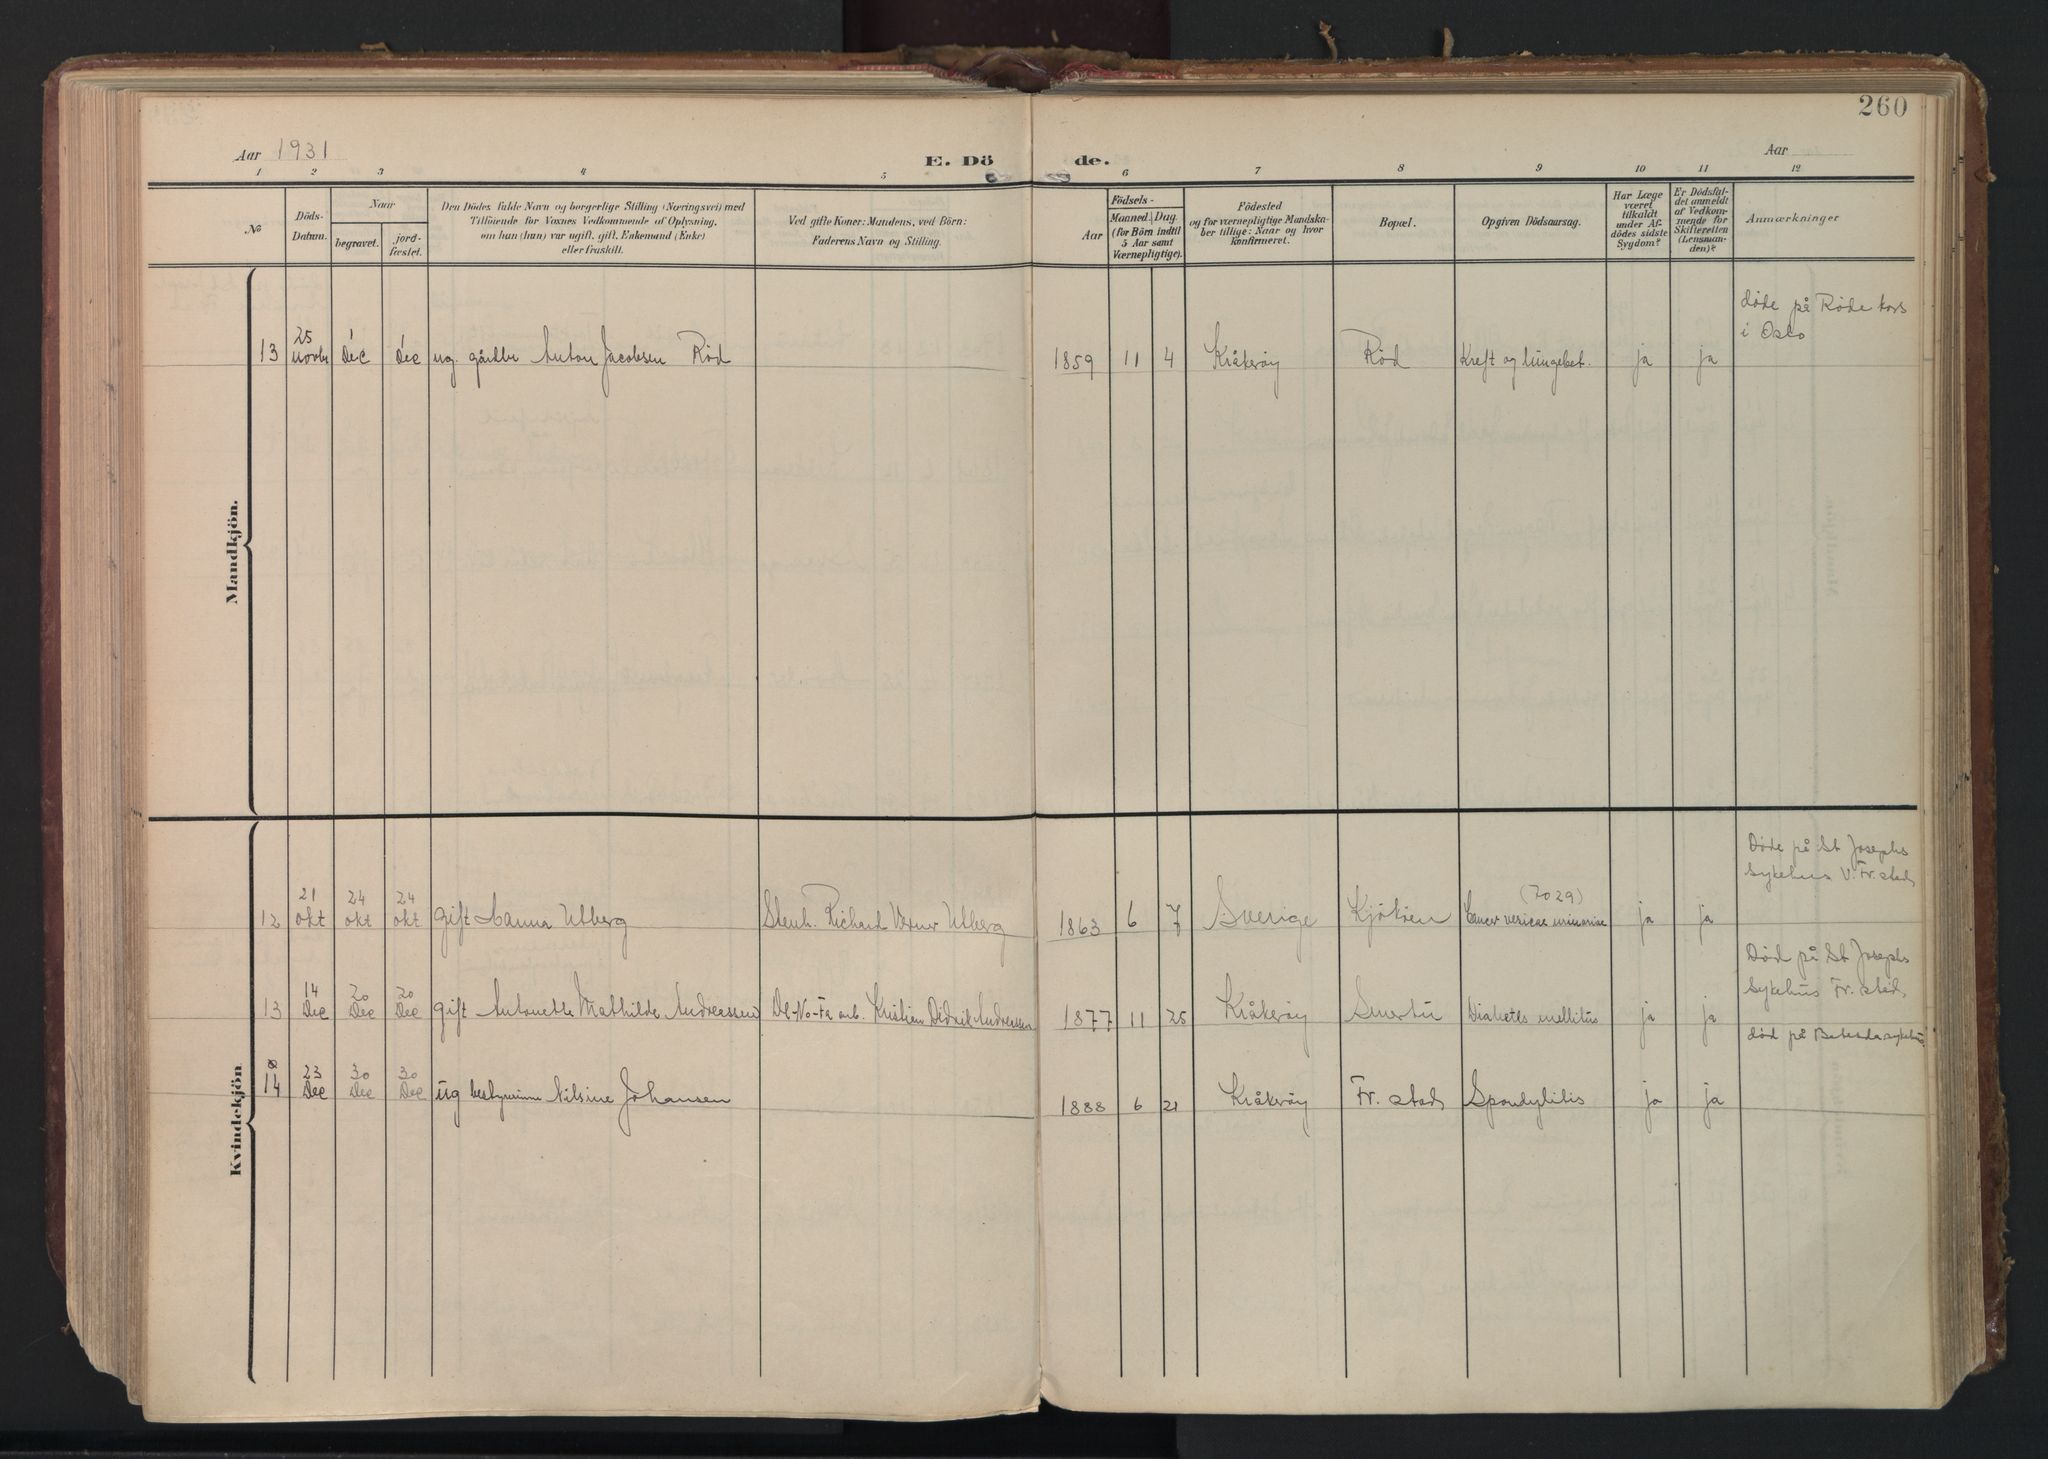 260
Aar 1931
E. Döde.
Aar
1 2 3 4 5 6 7 8 9 10 11 12
No
Döds-Datum.
Naar
begravet.
jord-fæstet.
Den Dödes fulde Navn og borgerlige Stilling (Næringsvei) med
Tilföiende for Voxnes Vedkommende af Oplysning,
om hun (han) var ugift, gift, Enkemand (Enke)
eller fraskilt.
Ved gifte Koner: Mandens, ved Börn:
Faderens Navn og Stilling.
Födsels-
Aar
Maaned. Dag.
(for Börn indtil
5 Aar samt
Værnepligtige).
Födested
og for værnepligtige Mandska-
ber tillige: Naar og hvor
konfirmeret.
Bopæl.
Opgiven Dödsaarsag.
Har Læge
været
tilkaldt
under Af-
dödes sidste
Sygdom?
Er Dödsfal-
det anmeldt
af Vedkom-
mende for
Skifteretten
(Lensman-
den)?
Anmærkninger
Mandkjön.
døde på Røde kors
i Oslo
13 25 novbr 1 Dec 1 Dec ug. gårdbr Anton Jacobsen Rød 1859 11 4 Kråkerøy Rød Kreft og lungebet. ja ja
Kvindekjön
Døde på St Josephs
sykehus v. Fr.stad
12 21 okt 24 okt 24 okt gift Hanna Utberg Stenh. Richard Verner Utberg 1863 6 7 Sverige Kjøkøen (7029) Cancer vesicae urinariae ja ja
Død på St Josephs
sykehus Fr.stad
13 14 Dec 20 Dec 20 Dec gift Antonette Mathilde Andreassen De-No-Fa arb. Kristian Didrik Andreassen 1877 11 25 Kråkerøy Smertu Diabetes mellitus ja ja
død på Betesda sykehus
14 23 Dec 30 Dec 30 Dec ug bestyrerinne Nilsine Johansen 1888 6 21 Kråkerøy Fr. stad Spondylitis ja ja